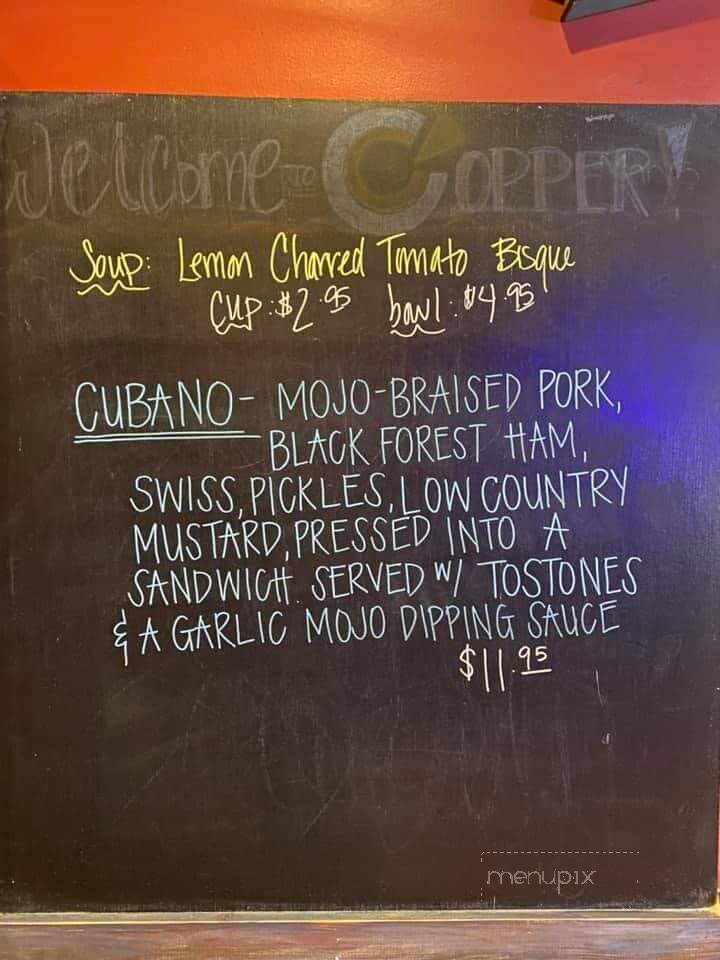 Welcome to COPPER!
Soup: Lemon Charred Tomato Bisque
Cup: $2.95 bowl: $4.95
CUBANO - MOJO-BRAISED PORK,
BLACK FOREST HAM,
SWISS, PICKLES, LOW COUNTRY
MUSTARD, PRESSED INTO A
SANDWICH. SERVED W/ TOSTONES
& A GARLIC MOJO DIPPING SAUCE
$11.95
menupix